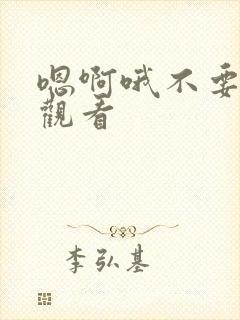 嗯啊哦不要
觀看
李弘基